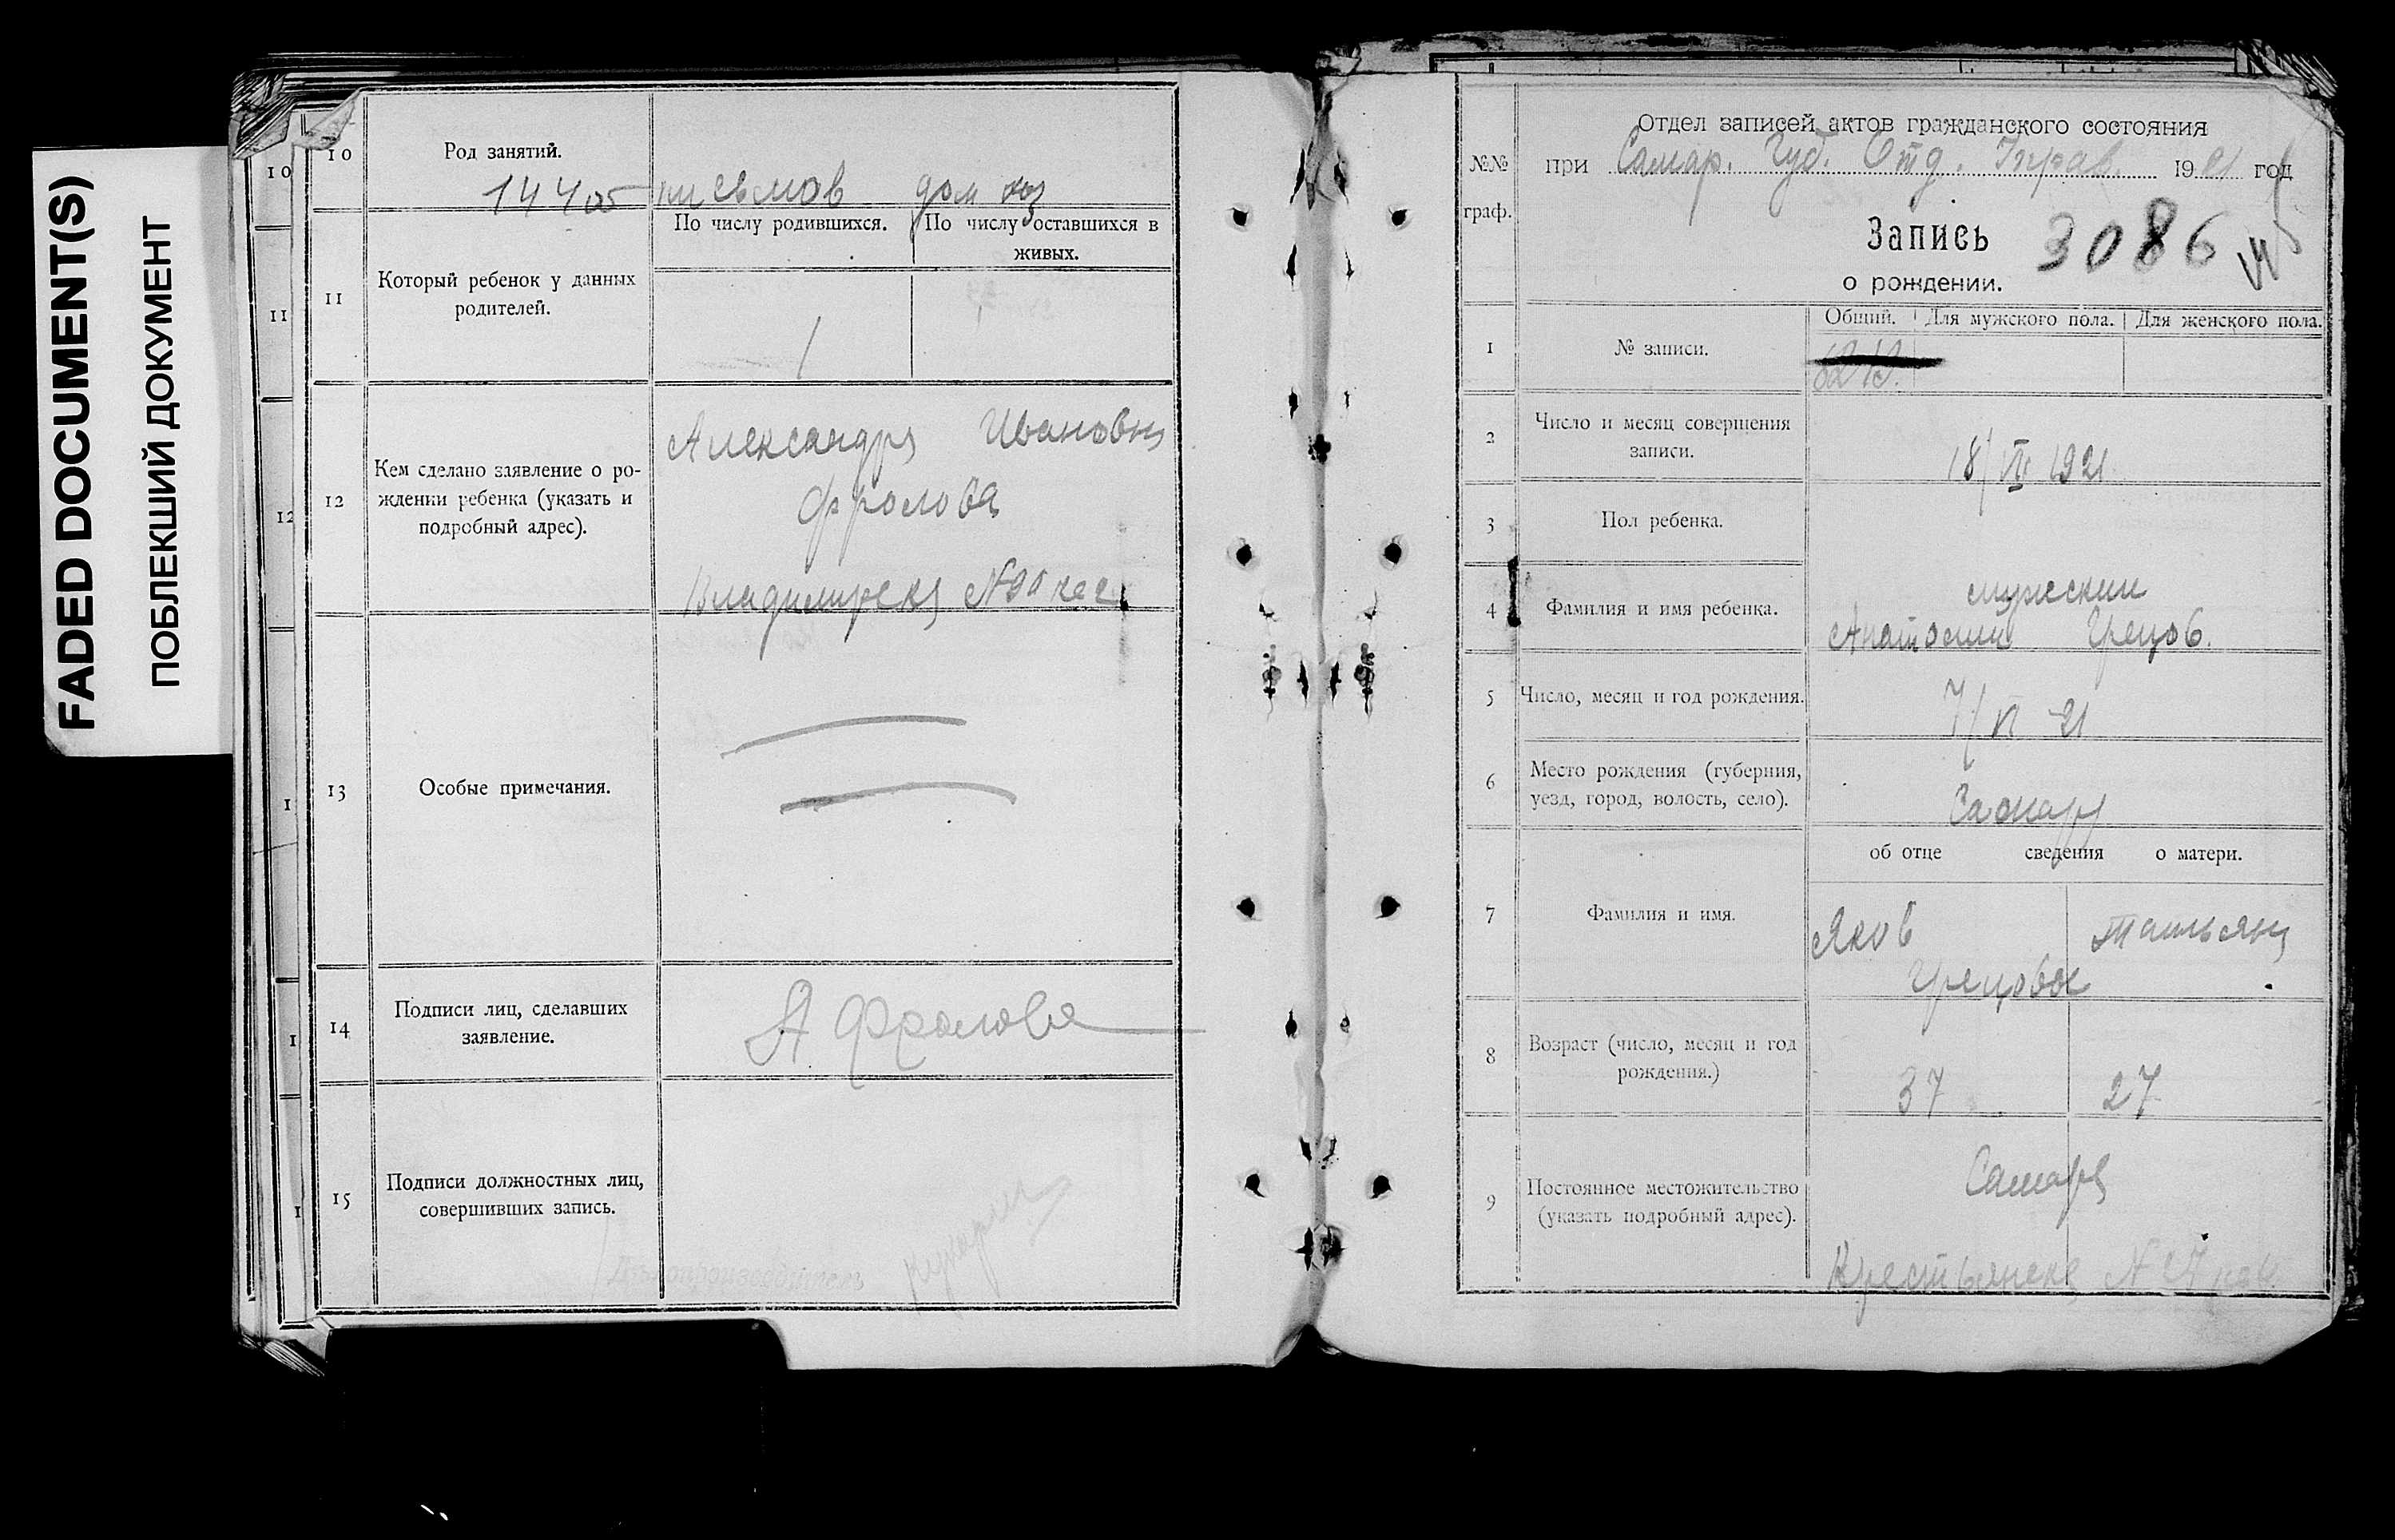 FADED DOCUMENT(S)
ПОБЛЕКШИЙ ДОКУМЕНТ
10
11
12
10
Род занятий.
144 об
письмов дом хоз
11
Который ребенок у данных
родителей.
По числу родившихся.
По числу оставшихся в
живых.
1
12
Кем сделано заявление о ро-
ждении ребенка (указать и
подробный адрес).
Александра Ивановна
Фролова
Владимирская №90
13
Особые примечания.
14
Подписи лиц, сделавших
заявление.
А Фролова
15
Подписи должностных лиц,
совершивших запись.
Делопроизводитель
№№
граф.
Отдел записей актов гражданского состояния
при Самар. Губ. Отд. Управ. 1921 год
Запись 3086
о рождении.
1
№ записи.
Общий.
Для мужского пола.
Для женского пола.
2
Число и месяц совершения
записи.
18/VI 1921
3
Пол ребенка.
мужский
4
Фамилия и имя ребенка.
Анатолий Грецов.
5
Число, месяц и год рождения.
7/VI-21
6
Место рождения (губерния,
уезд, город, волость, село).
Самара
об отце сведения о матери.
7
Фамилия и имя.
Яков Татьяна
Грецовы
8
Возраст (число, месяц и год
рождения.)
37 27
9
Постоянное местожительство
(указать подробный адрес).
Самара
Крестьянская №